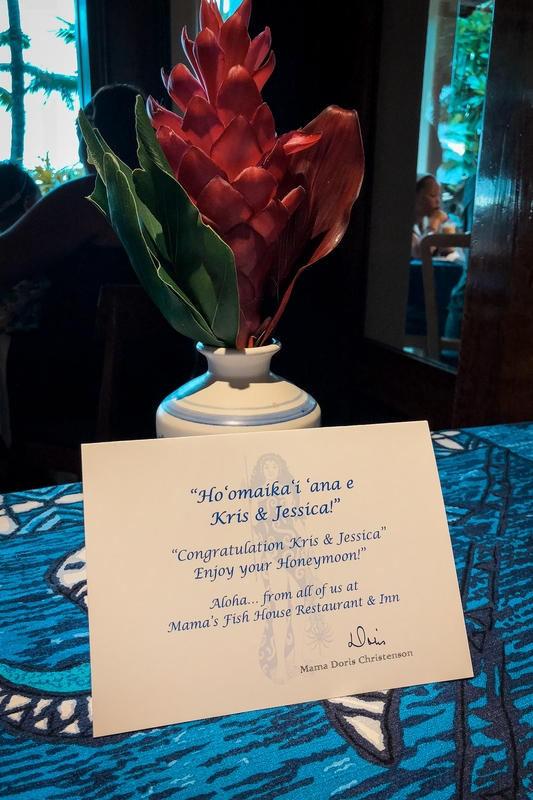 "Hoʻomaikaʻi ʻana e
Kris & Jessica!"
"Congratulation Kris & Jessica"
Enjoy your Honeymoon!"
Aloha... from all of us at
Mama's Fish House Restaurant & Inn
Doris
Mama Doris Christenson